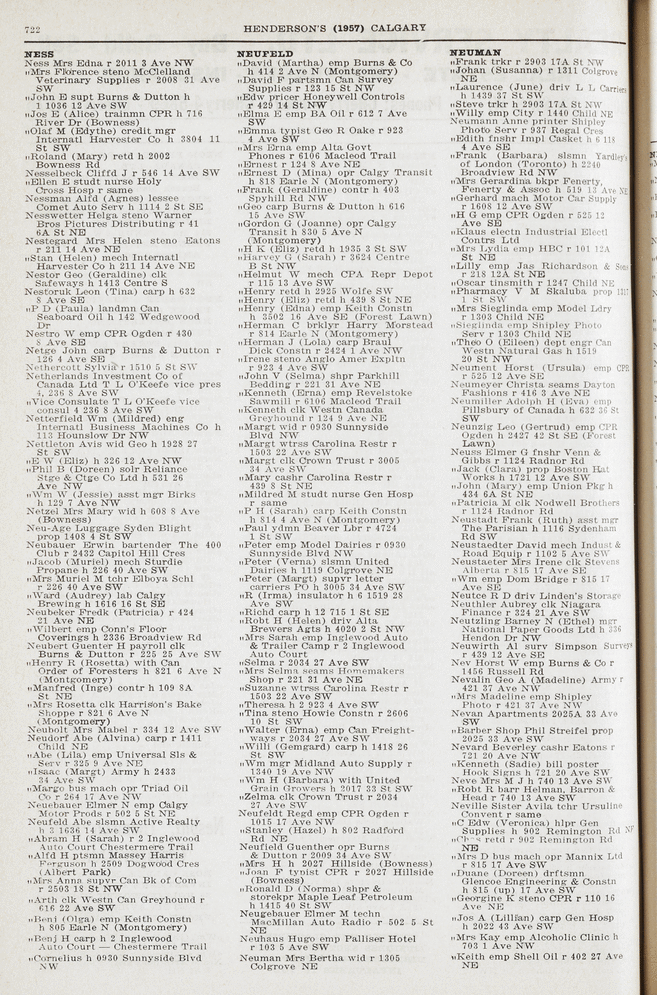 722
HENDERSON'S (1957) CALGARY
NESS
Ness Mrs Edna r 2011 3 Ave NW
„Mrs Florence steno McClelland
Veterinary Supplies r 2008 31 Ave
SW
„John E supt Burns & Dutton h
1 1036 12 Ave SW
„Jos E (Alice) trainmn CPR h 716
River Dr (Bowness)
„Olaf M (Edythe) credit mgr
Internatl Harvester Co h 3804 11
St SW
„Roland (Mary) retd h 2002
Bowness Rd
Nesselbeck Cliffd J r 546 14 Ave SW
„Ellen E studt nurse Holy
Cross Hosp r same
Nessman Alfd (Agnes) lessee
Comet Auto Serv h 1114 2 St SE
Nesswetter Helga steno Warner
Bros Pictures Distributing r 41
6A St NE
Nestegard Mrs Helen steno Eatons
r 211 14 Ave NE
„Stan (Helen) mech Internatl
Harvester Co h 211 14 Ave NE
Nestor Geo (Geraldine) clk
Safeways h 1413 Centre S
Nestoruk Leon (Tina) carp h 632
8 Ave SE
„P D (Paula) landmn Can
Seaboard Oil h 142 Wedgewood
Dr
Nestro W emp CPR Ogden r 430
8 Ave SE
Netge John carp Burns & Dutton r
126 4 Ave SE
Nethercott Sylvia r 1510 5 St SW
Netherlands Investment Co of
Canada Ltd T L O'Keefe vice pres
4, 236 8 Ave SW
„Vice Consulate T L O'Keefe vice
consul 4 236 8 Ave SW
Netterfield Wm (Mildred) eng
Internatl Business Machines Co h
113 Hounslow Dr NW
Nettleton Avis wid Geo h 1928 27
St SW
„E W (Eliz) h 326 12 Ave NW
„Phil B (Doreen) solr Reliance
Stge & Ctge Co Ltd h 531 26
Ave NW
„Wm W (Jessie) asst mgr Birks
h 129 7 Ave NW
Netzel Mrs Mary wid h 608 8 Ave
(Bowness)
Neu-Age Luggage Syden Blight
prop 1408 4 St SW
Neubauer Erwin bartender The 400
Club r 2432 Capitol Hill Cres
„Jacob (Muriel) mech Sturdie
Propane h 226 40 Ave SW
„Mrs Muriel M tchr Elboya Schl
r 226 40 Ave SW
„Ward (Audrey) lab Calgy
Brewing h 1616 16 St SE
Neubeker Fredk (Patricia) r 424
21 Ave NE
„Wilbert emp Conn's Floor
Coverings h 2336 Broadview Rd
Neubert Gunter H payroll clk
Burns & Dutton r 225 25 Ave SW
„Henry R (Rosetta) with Can
Order of Foresters h 821 6 Ave N
(Montgomery)
„Manfred (Inge) contr h 109 8A
St NE
„Mrs Rosetta clk Harrison's Bake
Shoppe r 821 6 Ave N
(Montgomery)
Neubolt Mrs Mabel r 334 12 Ave SW
Neudorf Abe (Alvina) carp r 1411
Child NE
„Abe (Lila) emp Universal Sls &
Serv r 325 9 Ave NE
„Isaac (Margt) Army h 2433
34 Ave SW
„Margo bus mach opr Triad Oil
Co r 264 17 Ave NW
Neuebauer Elmer N emp Calgy
Motor Prods r 502 5 St NE
Neufeld Abe slsmn Active Realty
h 3 1636 14 Ave SW
„Abram H (Sarah) r 2 Inglewood
Auto Court Chestermere Trail
„Alfd H ptsmn Massey Harris
Ferguson h 2509 Dogwood Cres
(Albert Park)
„Mrs Anna supvr Can Bk of Com
r 2503 18 St NW
„Arth clk Westn Can Greyhound r
616 22 Ave SW
„Benj (Olga) emp Keith Constn
h 805 Earle N (Montgomery)
„Benj H carp h 2 Inglewood
Auto Court — Chestermere Trail
„Cornelius h 0930 Sunnyside Blvd
NW
NEUFELD
„David (Martha) emp Burns & Co
h 414 2 Ave N (Montgomery)
„David F partsmn Can Survey
Supplies r 123 15 St NW
„Edw pricer Honeywell Controls
r 429 14 St NW
„Elma E emp BA Oil r 612 7 Ave
SW
„Emma typist Geo R Oake r 923
4 Ave SW
„Mrs Erna emp Alta Govt
Phones r 6106 Macleod Trail
„Ernest r 124 8 Ave NE
„Ernest D (Mina) opr Calgy Transit
h 818 Earle N (Montgomery)
„Frank (Geraldine) contr h 403
Spyhill Rd NW
„Geo carp Burns & Dutton h 616
15 Ave SW
„Gordon G (Joanne) opr Calgy
Transit h 830 5 Ave N
(Montgomery)
„H K (Eliz) retd h 1935 3 St SW
„Harvey G (Sarah) r 3624 Centre
B St NW
„Helmut W mech CPA Repr Depot
r 115 13 Ave SW
„Henry retd h 2925 Wolfe SW
„Henry (Eliz) retd h 439 8 St NE
„Henry (Edna) emp Keith Constn
h 3502 16 Ave SE (Forest Lawn)
„Herman C brklyr Harry Morstead
r 814 Earle N (Montgomery)
„Herman J (Lola) carp Braul
Dick Constn r 2424 1 Ave NW
„Irene steno Anglo Amer Expltn
r 923 4 Ave SW
„John V (Selma) shpr Parkhill
Bedding r 221 31 Ave NE
„Kenneth (Erna) emp Revelstoke
Sawmill r 6106 Macleod Trail
„Kenneth clk Westn Canada
Greyhound r 124 9 Ave NE
„Margt wid r 0930 Sunnyside
Blvd NW
„Margt wtrss Carolina Restr r
1503 22 Ave SW
„Margt clk Crown Trust r 3005
34 Ave SW
„Mary cashr Carolina Restr r
439 8 St NE
„Mildred M studt nurse Gen Hosp
r same
„P H (Sarah) carp Keith Constn
h 814 4 Ave N (Montgomery)
„Paul ydmn Beaver Lbr r 4724
1 St SW
„Peter emp Model Dairies r 0930
Sunnyside Blvd NW
„Peter (Verna) slsmn United
Dairies h 1119 Colgrove NE
„Peter (Margt) supvr letter
carriers PO h 3005 34 Ave SW
„R (Irma) insulator h 6 1519 28
Ave SW
„Richd carp h 12 715 1 St SE
„Robt H (Helen) driv Alta
Brewers Agts h 4020 2 St NW
„Mrs Sarah emp Inglewood Auto
& Trailer Camp r 2 Inglewood
Auto Court
„Selma r 2034 27 Ave SW
„Mrs Selma seams Homemakers
Shop r 221 31 Ave NE
„Suzanne wtrss Carolina Restr r
1503 22 Ave SW
„Theresa h 2 923 4 Ave SW
„Tina steno Howie Constn r 2606
10 St SW
„Walter (Erna) emp Can Freight-
ways r 2034 27 Ave SW
„Willi (Gemgard) carp h 1418 26
St SW
„Wm mgr Midland Auto Supply r
1340 19 Ave NW
„Wm H (Barbara) with United
Grain Growers h 2017 33 St SW
„Zelma clk Crown Trust r 2034
27 Ave SW
Neufeldt Regd emp CPR Ogden r
1015 17 Ave NW
„Stanley (Hazel) h 802 Radford
Rd NE
Neufield Guenther opr Burns
& Dutton r 2009 34 Ave SW
„Mrs H h 2027 Hillside (Bowness)
„Joan F typist CPR r 2027 Hillside
(Bowness)
„Ronald D (Norma) shpr &
storekpr Maple Leaf Petroleum
h 1415 40 St SW
Neugebauer Elmer M techn
MacMillan Auto Radio r 502 5 St
NE
Neuhaus Hugo emp Palliser Hotel
r 103 5 Ave SW
Neuman Mrs Bertha wid r 1305
Colgrove NE
NEUMAN
„Frank trkr r 2903 17A St NW
„Johan (Susanna) r 1311 Colgrove
NE
„Laurence (June) driv L L Carriers
h 1439 37 St SW
„Steve trkr h 2903 17A St NW
„Willy emp City r 1440 Child NE
Neumann Anne printer Shipley
Photo Serv r 937 Regal Cres
„Edith fnshr Impl Casket h 6 118
4 Ave SE
„Frank (Barbara) slsmn Yardley's
of London (Toronto) h 2240
Broadview Rd NW
„Mrs Gerardina bkpr Fenerty,
Fenerty & Assoc h 519 13 Ave NE
„Gerhard mach Motor Car Supply
r 1608 12 Ave SW
„H G emp CPR Ogden r 525 12
Ave SE
„Klaus electn Industrial Electl
Contrs Ltd
„Mrs Lydia emp HBC r 101 12A
St NE
„Lilly emp Jas Richardson & Sons
r 218 12A St NE
„Oscar tinsmith r 1247 Child NE
„Pharmacy V M Skaluba prop
1 St SW
„Mrs Sieglinda emp Model Ldry
r 1303 Child NE
„Sieglinda emp Shipley Photo
Serv r 1303 Child NE
„Theo O (Eileen) dept engr Can
Westn Natural Gas h 1519
20 St NW
Neument Horst (Ursula) emp CPR
r 525 12 Ave SE
Neumeyer Christa seams Dayton
Fashions r 416 3 Ave NE
Neumiller Adolph H (Eva) emp
Pillsbury of Canada h 632 36 St
SW
Neunzig Leo (Gertrud) emp CPR
Ogden h 2427 42 St SE (Forest
Lawn)
Neuss Elmer G fnshr Venn &
Gibbs r 1124 Radnor Rd
„Jack (Clara) prop Boston Hat
Works h 1721 12 Ave SW
„John (Mary) emp Union Pkg h
434 6A St NE
„Patricia M clk Nodwell Brothers
r 1124 Radnor Rd
Neustadt Frank (Ruth) asst mgr
The Parisian h 1116 Sydenham
Rd SW
Neustaedter David mech Indust &
Road Equip r 1102 5 Ave SW
Neustaeter Mrs Irene clk Stevens
Alberta r 815 17 Ave SE
„Wm emp Dom Bridge r 815 17
Ave SE
Neutce R D driv Linden's Storage
Neuthler Aubrey clk Niagara
Finance r 324 21 Ave SW
Neutzling Barney N (Ethel) mgr
National Paper Goods Ltd h 336
Hendon Dr NW
Neuwirth Al surv Simpson Surveys
r 439 12 Ave SE
Nev Horst W emp Burns & Co r
1456 Russell Rd
Nevalin Geo A (Madeline) Army r
421 37 Ave NW
„Mrs Madeline emp Shipley
Photo r 421 37 Ave NW
Nevan Apartments 2025A 33 Ave
SW
„Barber Shop Phil Streifel prop
2025 33 Ave SW
Nevard Beverley cashr Eatons r
721 20 Ave NW
„Kenneth (Sadie) bill poster
Hook Signs h 721 20 Ave SW
Neve Mrs M J h 740 13 Ave SW
„Robt R barr Helman, Barron &
Head r 740 13 Ave SW
Neville Sister Avila tchr Ursuline
Convent r same
„C Edw (Veronica) hlpr Gen
Supplies h 902 Remington Rd NE
„Chas retd r 902 Remington Rd
NE
„Mrs D bus mach opr Mannix Ltd
r 815 17 Ave SW
„Duane (Doreen) drftsmn
Glencoe Engineering & Constn
h 815 (up) 17 Ave SW
„Georgine K steno CPR r 110 16
Ave NE
„Jos A (Lillian) carp Gen Hosp
h 2022 43 Ave SW
„Mrs Kay emp Alcoholic Clinic h
703 1 Ave NW
„Keith emp Shell Oil r 402 27 Ave
NE